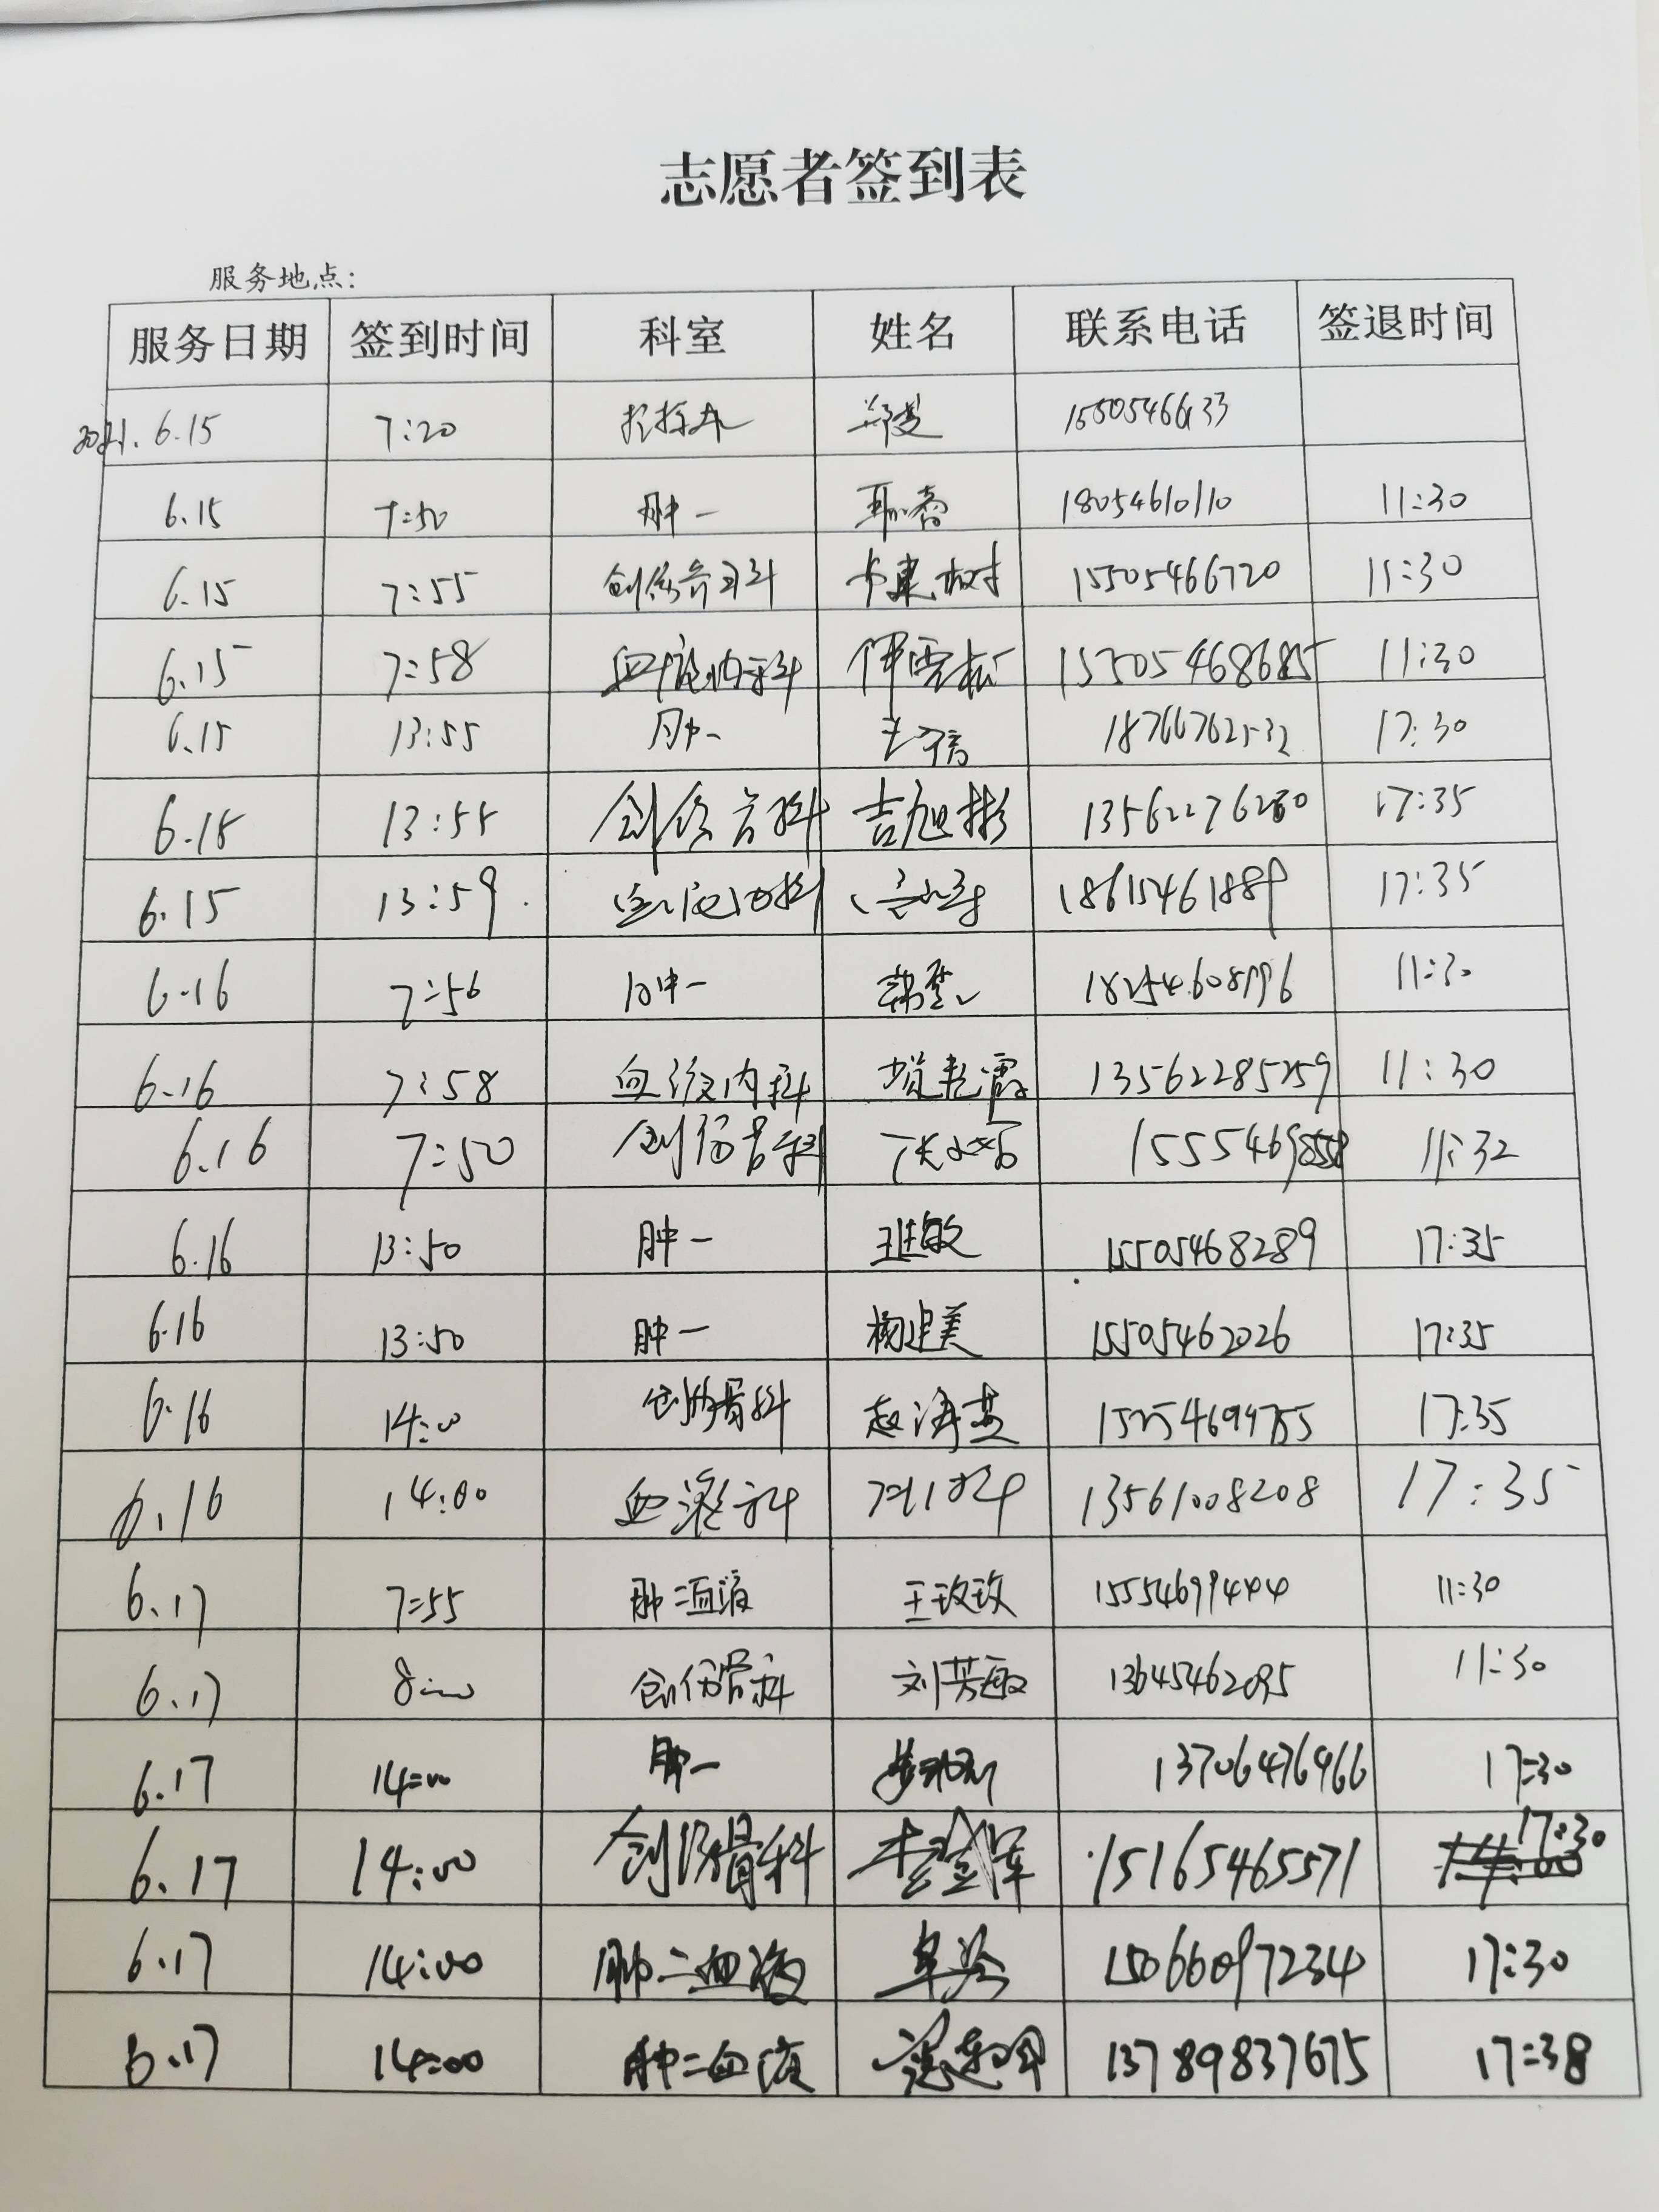 志愿者签到表
服务地点:
服务日期 签到时间 科室 姓名 联系电话 签退时间
2021. 6.15 7:20 郑
6.15 7:50 肿一 18054610110 11:30
6.15 7:55 创伤骨科 15505466720 11:30
6.15 7:58 血液内科 11:30
6.15 13:55 肿一 18766762532 17:30
6.15 13:55 创伤骨科 吉旭彬 17:35
6.15 13:59 血液内科 18615461889 17:35
6.16 7:56 肿一 11:30
6.16 7:58 血液内科 13562285259 11:30
6.16 7:50 创伤骨科 11:32
6.16 13:50 肿一 敏 15505468289 17:35
6.16 13:50 肿一 杨建美 15505462026 17:35
6.16 14:00 创伤骨科 赵海燕 17:35
6.16 14:00 血液科 13561008208 17:35
6.17 7:55 肿二血液 王玫玫 15554699444 11:30
6.17 8:00 创伤骨科 刘芳敏 13645462095 11:30
6.17 14:00 肿一 13706476966 17:30
6.17 14:00 创伤骨科 15165465571 17:30
6.17 14:00 肿二血液 15066097234 17:30
6.17 14:00 肿二血液 13789837675 17:38